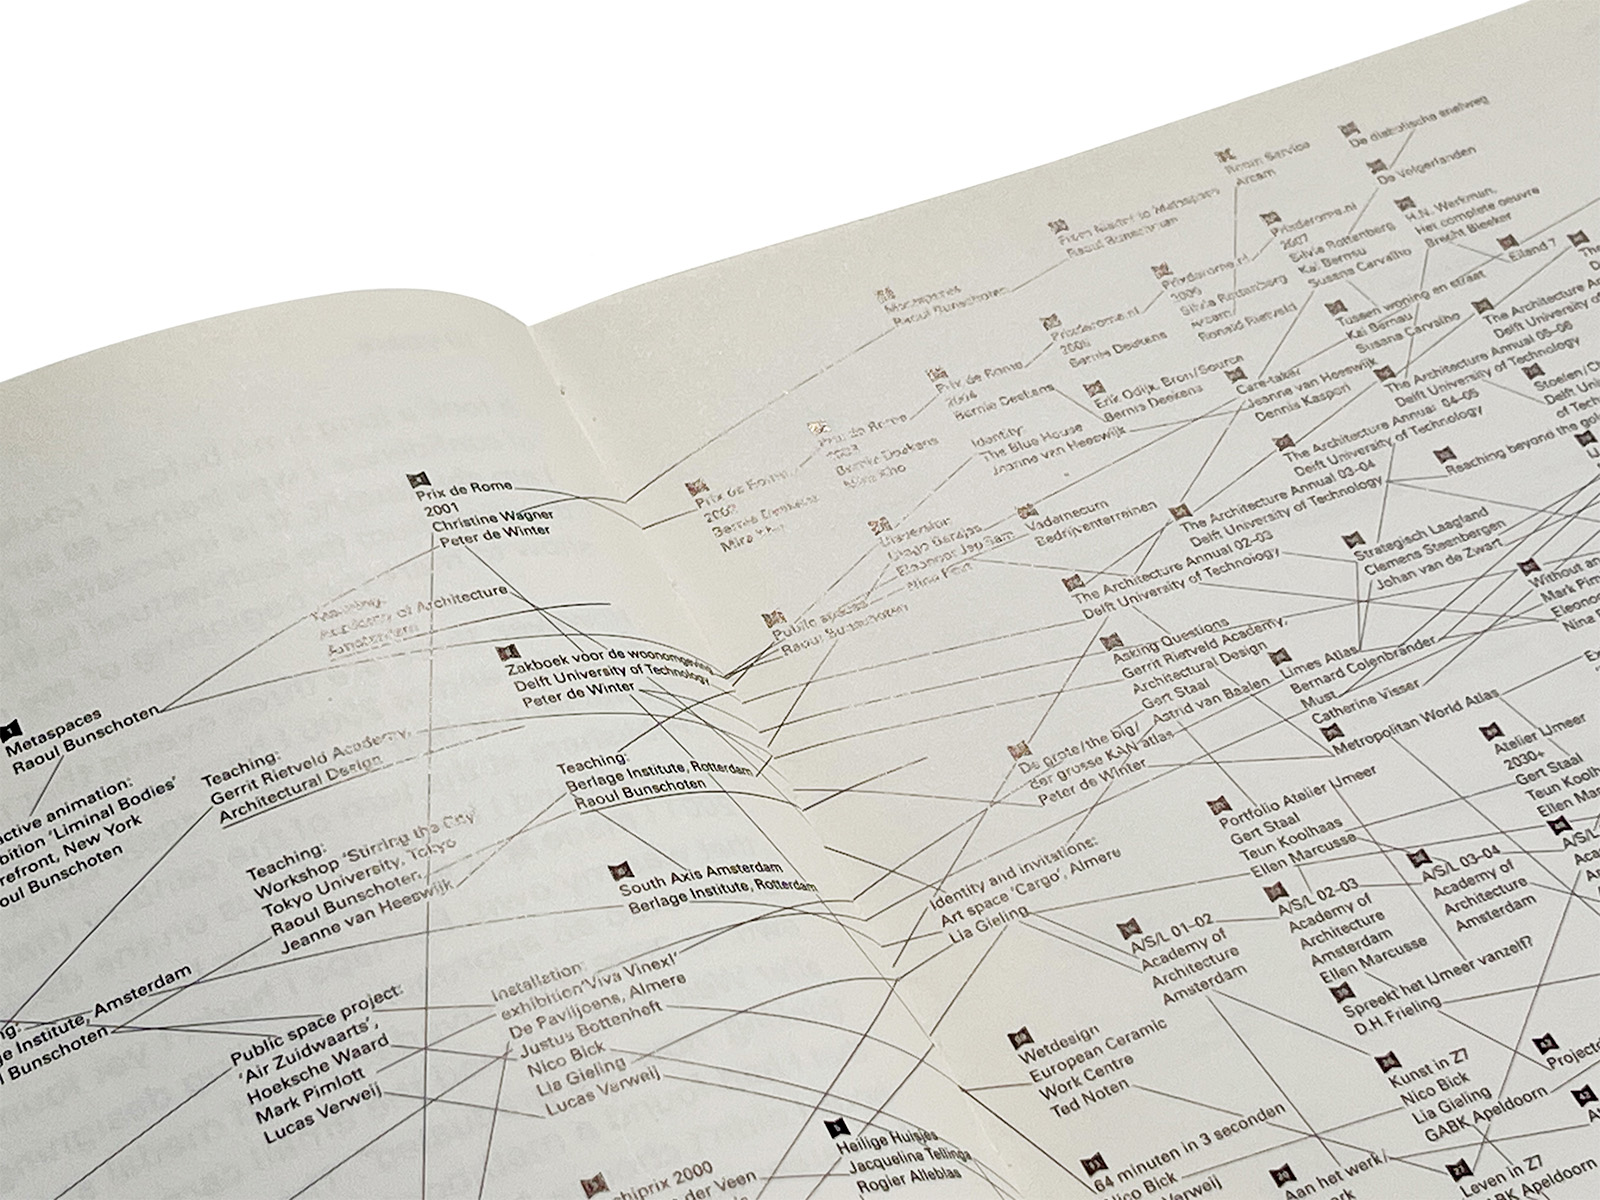 Prix de Rome
2001
Christine Wagner
Peter de Winter
Teaching:
Academy of Architecture
Amsterdam
Zakboek voor de woonomgeving
Delft University of Technology
Peter de Winter
1
Metaspaces
Raoul Bunschoten
active animation:
bition 'Liminal Bodies'
refront, New York
oul Bunschoten
Teaching:
Gerrit Rietveld Academy,
Architectural Design
Teaching:
Berlage Institute, Rotterdam
Raoul Bunschoten
Teaching:
Workshop 'Stirring the City'
Tokyo University, Tokyo
Raoul Bunschoten,
Jeanne van Heeswijk
South Axis Amsterdam
Berlage Institute, Rotterdam
ng:
ge Institute, Amsterdam
l Bunschoten
Public space project:
'Air Zuidwaarts',
Hoeksche Waard
Mark Pimlott
Lucas Verweij
Installation:
exhibition 'Viva Vinex!'
De Paviljoens, Almere
Justus Bottenheft
Nico Bick
Lia Gieling
Lucas Verweij
chiprix 2000
der Veen
Heilige Huisjes
Jacqueline Tellinga
Rogier Alleblas
Metaspaces
Raoul Bunschoten
Raoul Bunschoten
Room Service
Arcam
De diabolische snelweg
De Volgerlanden
H.N. Werkman,
Het complete oeuvre
Brecht Bleeker
Eiland 7
Prixderome.nl
2007
Silvia Rottenberg
Kai Bernau
Susana Carvalho
Prixderome.nl
2006
Silvia Rottenberg
Arcam
Ronald Rietveld
Prixderome.nl
2005
Bernie Deekens
Prix de Rome
2004
Bernie Deekens
Prix de Rome
2003
Bernie Deekens
Mira Kho
Prix de Rome
2002
Bernie Deekens
Mira Kho
Erik Odijk, Bron/Source
Bernie Deekens
Identity:
The Blue House
Jeanne van Heeswijk
Care-taker
Jeanne van Heeswijk
Dennis Kaspori
Tussen woning en straat
Kai Bernau
Susana Carvalho
The Architecture An
Delft University of
The Architecture Annual 05–06
Delft University of Technology
The Architecture Annual 04–05
Delft University of Technology
The Architecture Annual 03–04
Delft University of Technology
The Architecture Annual 02–03
Delft University of Technology
Reaching beyond the gol
Vademecum
Bedrijventerreinen
Public spaces
Raoul Bunschoten
Strategisch Laagland
Clemens Steenbergen
Johan van de Zwart
Without an
Mark Pim
Eleono
Nina
Asking Questions
Gerrit Rietveld Academy,
Architectural Design
Gert Staal
Astrid van Baalen
Limes Atlas
Bernard Colenbrander
Must
Catherine Visser
Metropolitan World Atlas
De grote/the big/
der grosse KAN atlas
Peter de Winter
Atelier IJmeer
2030+
Gert Staal
Teun Koolh
Ellen Mar
Portfolio Atelier IJmeer
Gert Staal
Teun Koolhaas
Ellen Marcusse
Identity and invitations:
Art space 'Cargo', Almere
Lia Gieling
A/S/L 01–02
Academy of
Architecture
Amsterdam
A/S/L 02–03
Academy of
Architecture
Amsterdam
Ellen Marcusse
A/S/L 03–04
Academy of
Architecture
Amsterdam
Spreekt het IJmeer vanzelf?
D.H. Frieling
Wetdesign
European Ceramic
Work Centre
Ted Noten
Kunst in Z7
Nico Bick
Lia Gieling
GABK Apeldoorn
64 minuten in 3 seconden
Nico Bick
Verweij
Aan het werk/
Leven in Z7
BK Apeldoorn